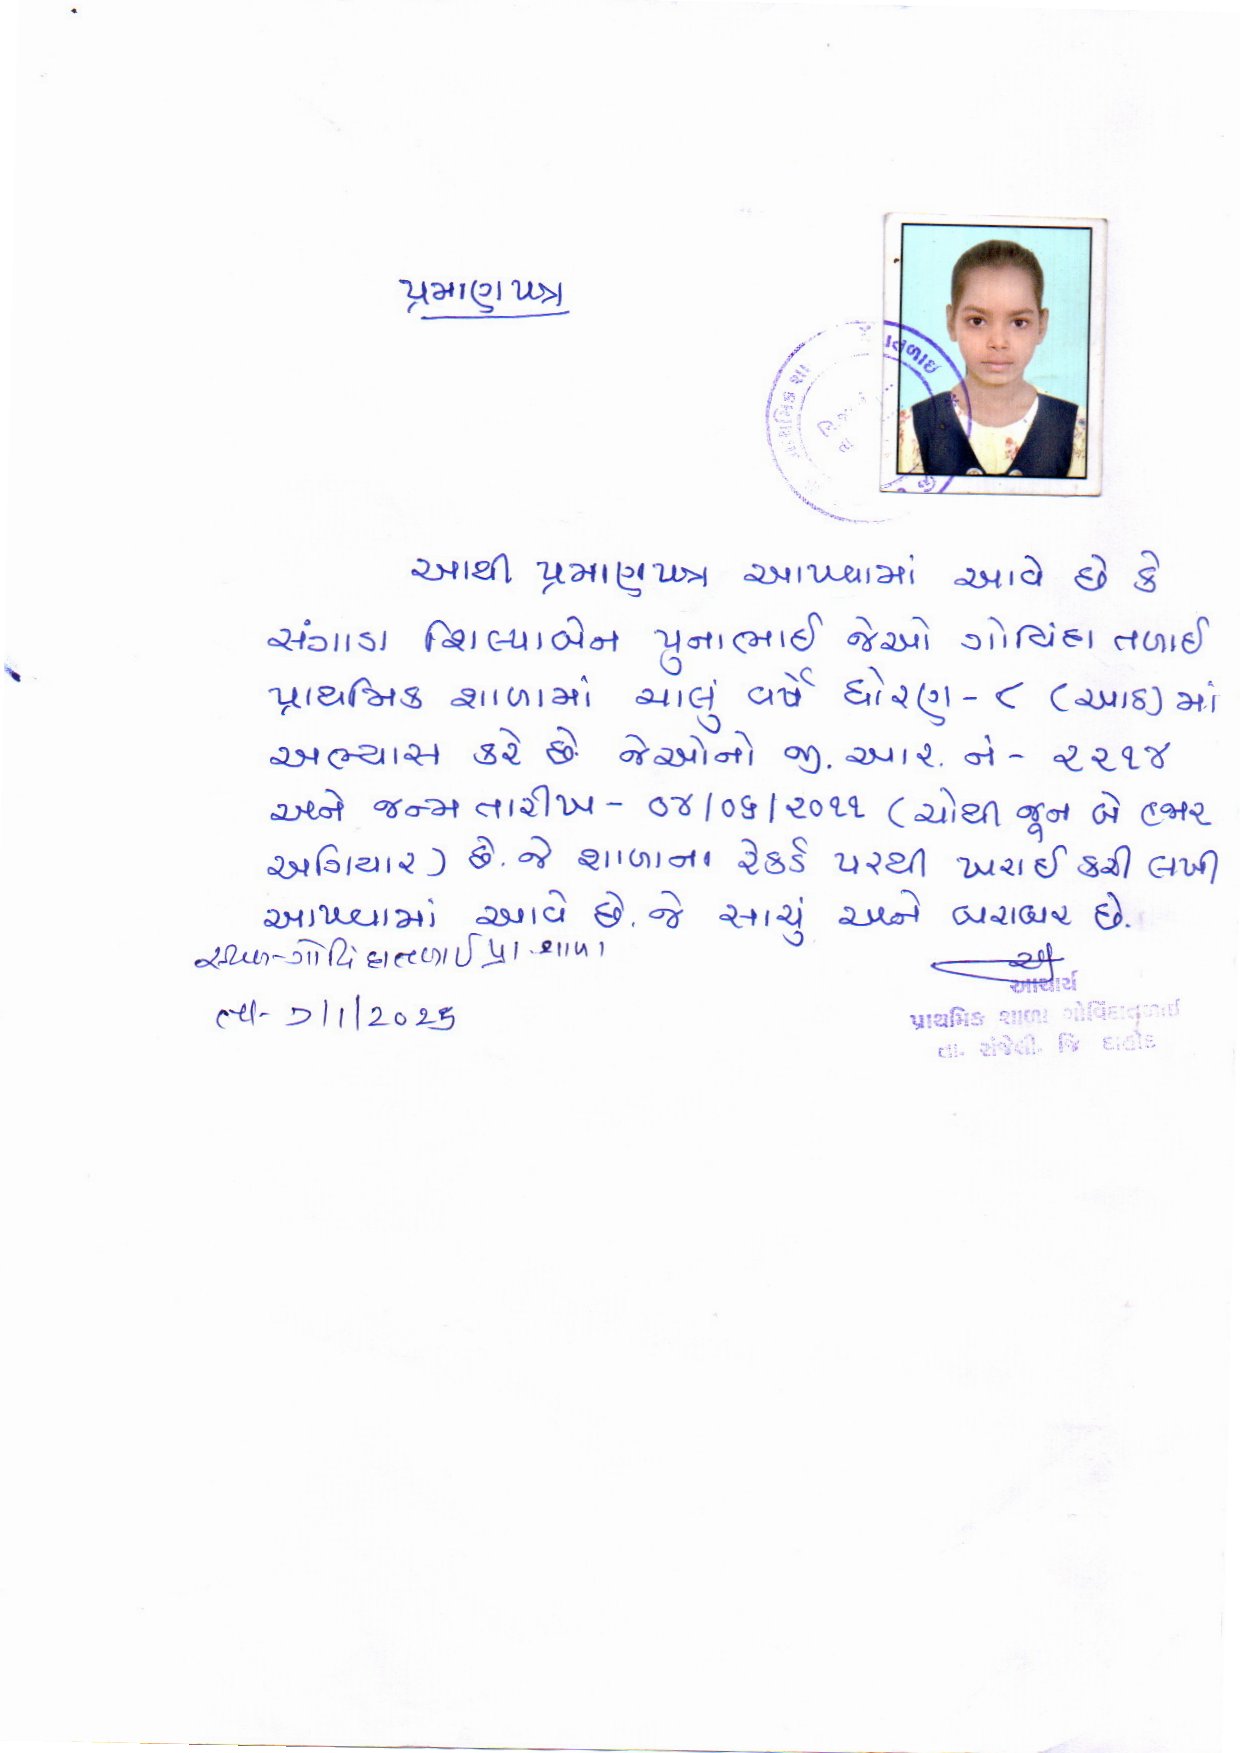 પ્રમાણપત્ર
તળાઇ
પ્રાથમિક શા
આથી પ્રમાણપત્ર આપવામાં આવે છે કે
સંગાડા શિલ્પાબેન પુનાભાઈ જેઓ ગોવિંદા તળાઈ
પ્રાથમિક શાળામાં ચાલું વર્ષે ધોરણ - ૮ (આઠ) માં
અભ્યાસ કરે છે. જેઓનો જી. આર. નં - ૨૨૧૪
અને જન્મ તારીખ - ૦૪/૦૬/૨૦૧૧ (ચોથી જૂન બે હજાર
અગિયાર) છે. જે શાળાના રેકર્ડ પરથી ખરાઈ કરી લખી
આપવામાં આવે છે. જે સાચું અને બરાબર છે.
સ્થળ-ગોવિંદાતળાઈ પ્રા.શાળા
તા- ૭/૧/૨૦૨૫
આચાર્ય
પ્રાથમિક શાળા ગોવિંદાતળાઈ
તા. સંજેલી. જિ દાહોદ